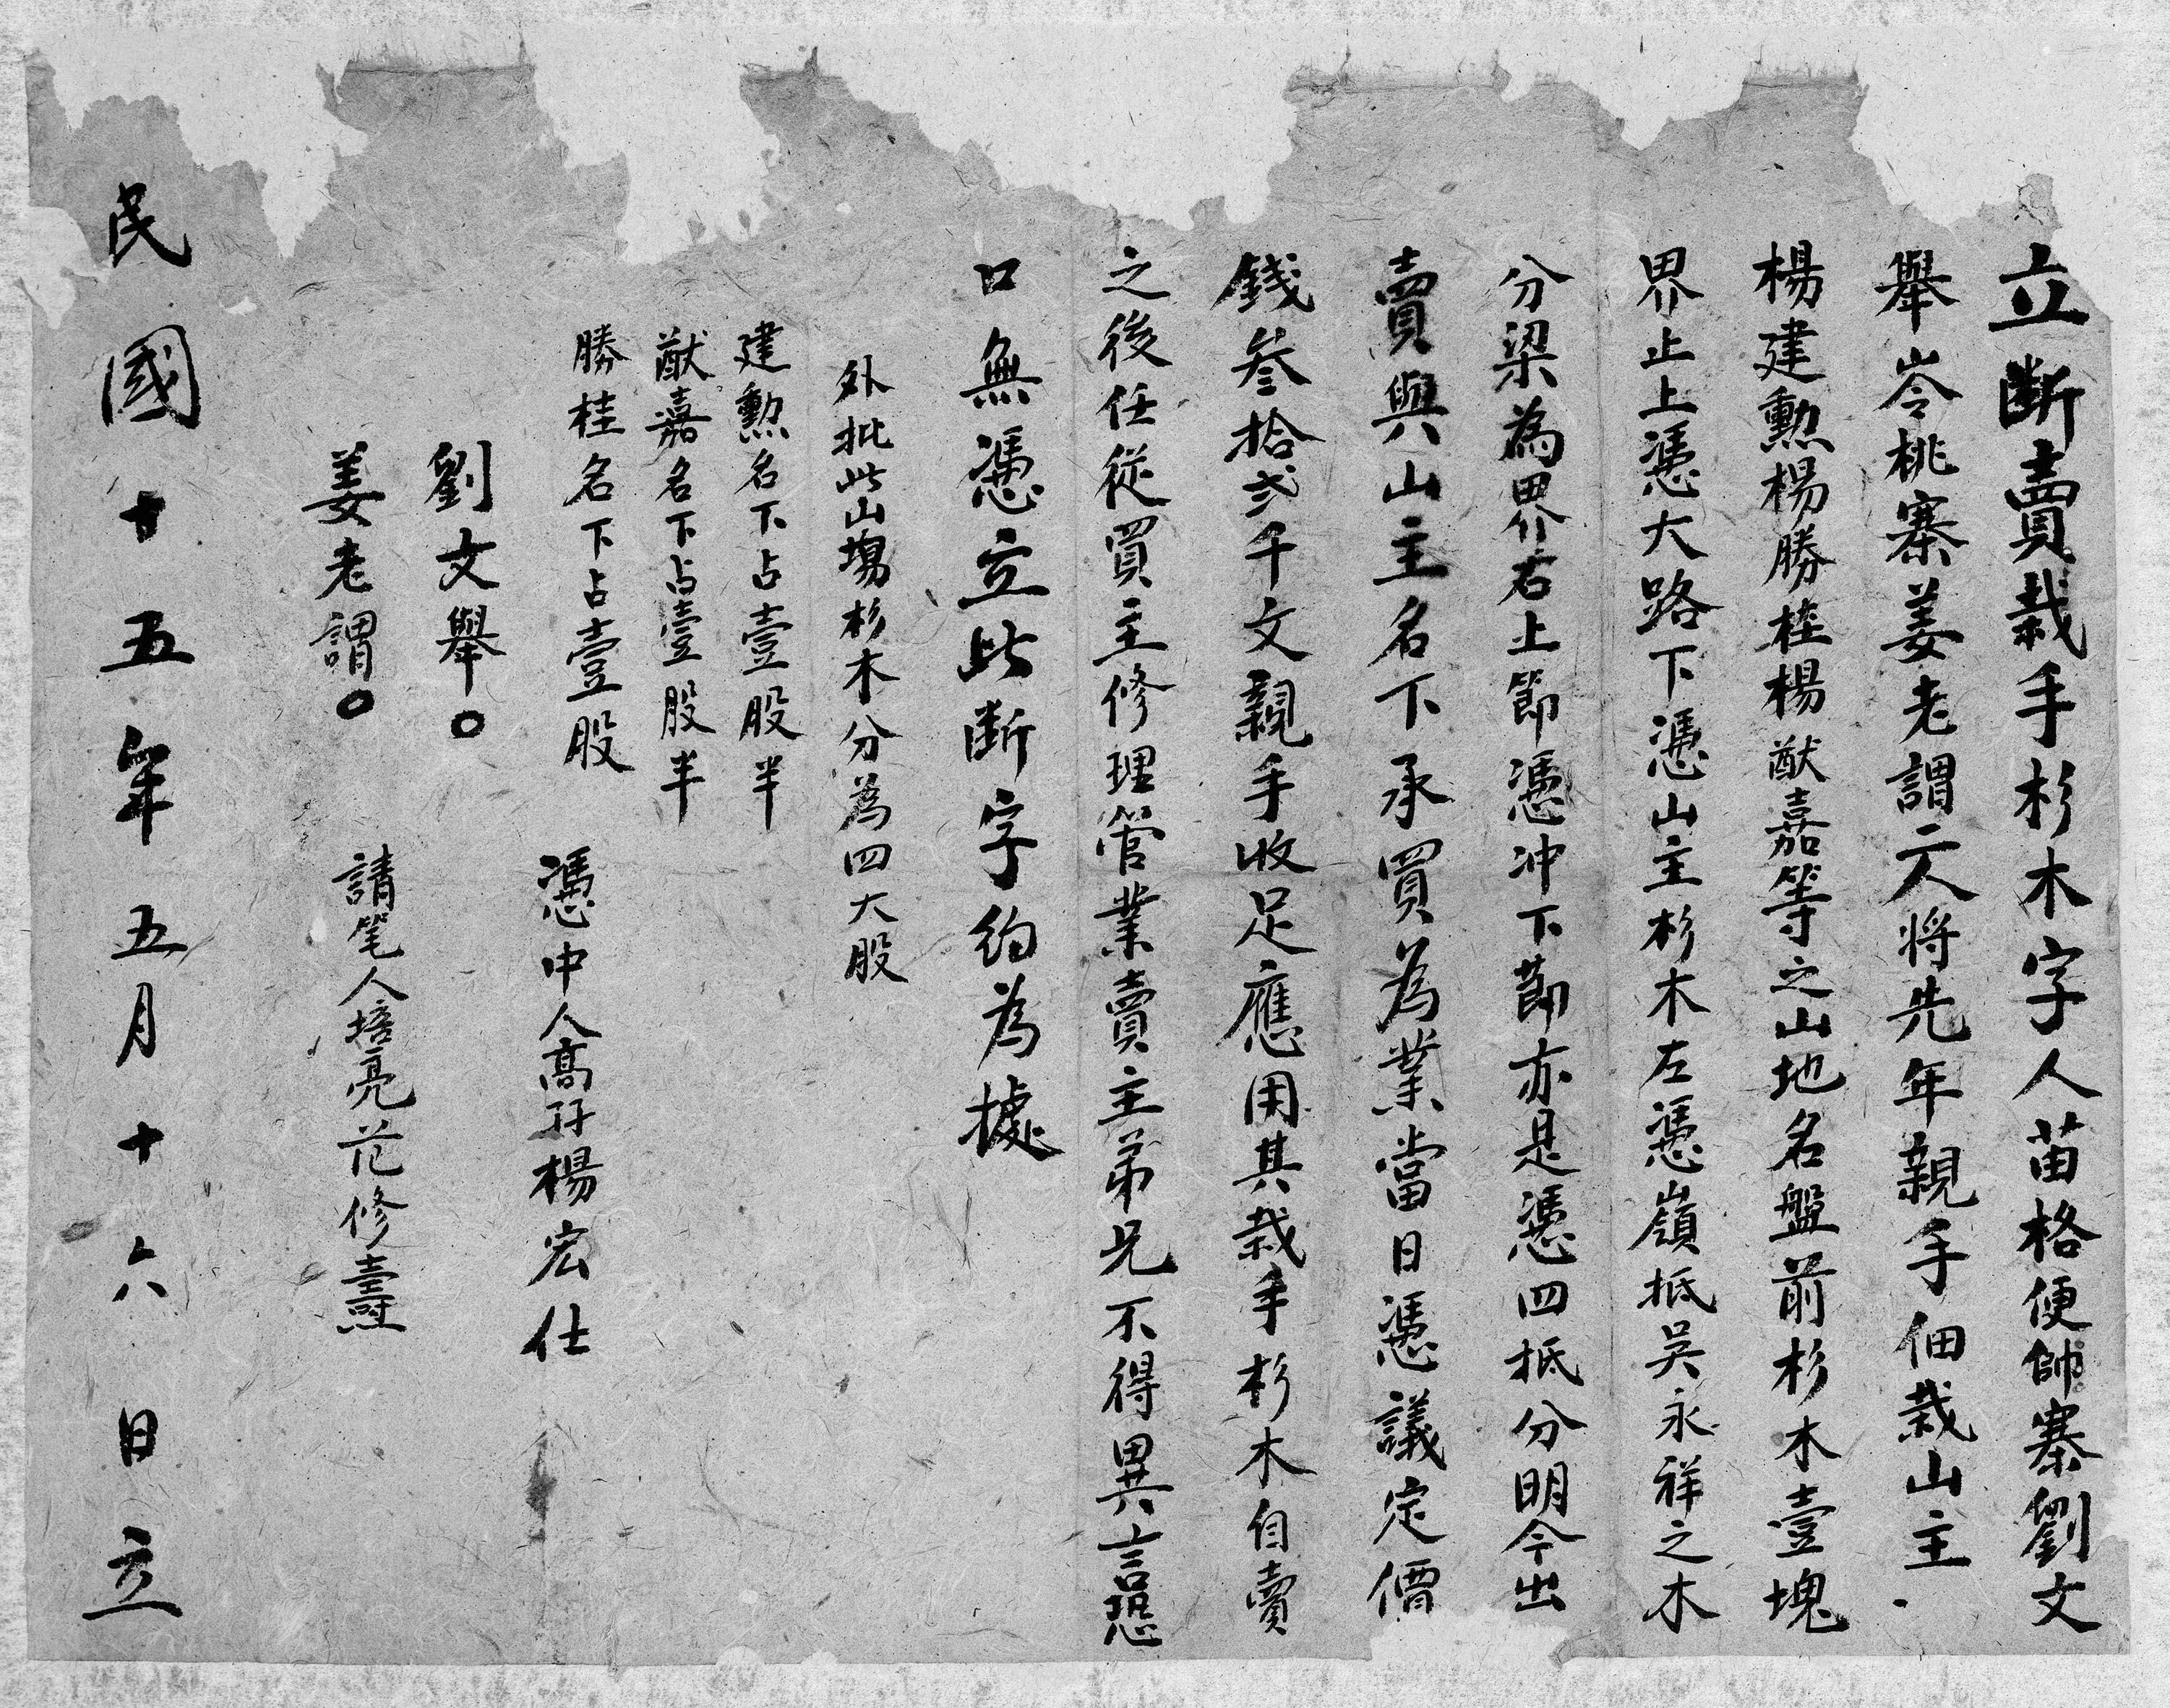 立斷賣栽手杉木字人苗格便帥寨劉文
舉岑桃寨姜老謂二人將先年親手佃栽山主
楊建勲楊勝桂楊猷嘉等之山地名盤前杉木壹塊
界止上憑大路下憑山主杉木左憑嶺抵吳永祥之木
分梁為界右上節憑冲下節亦是憑四抵分明今出
賣與山主名下承買為業當日憑議定價
錢叁拾弍千文親手收足應用其栽手杉木自賣
之後任從買主修理管業賣主弟兄不得異言恐
口無憑立此斷字約為據
外批此山塲杉木分為四大股
建勲名下占壹股半
猷嘉名下占壹股半
勝桂名下占壹股
憑中人高孖楊宏仕
劉文舉〇
姜老謂〇
請笔人培亮范修壽
民國十五年五月十六日立